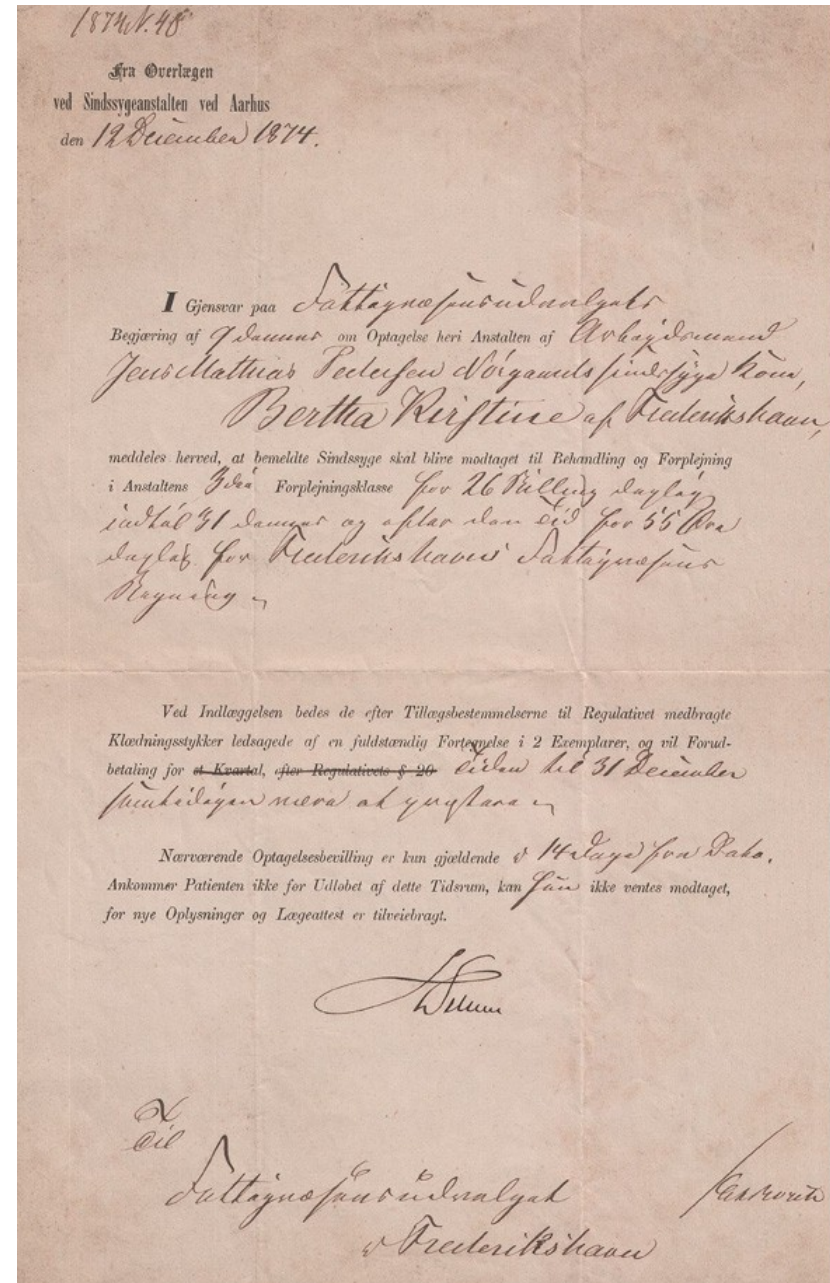 1874 N. 48
Fra Overlægen
ved Sindssygeanstalten ved Aarhus
den 12 December 1874.
I Gjensvar paa Fattigvæsensudvalgets
Begjæring af 9 dennes om Optagelse heri Anstalten af Arbejdsmand
Jens Mathias Pedersen Nörgaards sindssyge Kone,
Bertha Kirstine af Frederikshavn,
meddeles herved, at bemeldte Sindssyge skal blive modtaget til Behandling og Forplejning
i Anstaltens 3die Forplejningsklasse for 26 Skilling daglig
indtil 31 dennes og efter den Tid for 55 Øre
daglig for Frederikshavns Fattigvæsens
Regning
Ved Indlæggelsen bedes de efter Tillægsbestemmelserne til Regulativet medbragte
Klædningsstykker ledsagede af en fuldstændig Fortegnelse i 2 Exemplarer, og vil Forud-
betaling for et Kvartal, efter Regulativets § 20 Tiden til 31 December
være at
Nærværende Optagelsesbevilling er kun gjældende i 14 Dage fra Dato.
Ankommer Patienten ikke før Udløbet af dette Tidsrum, kan hun ikke ventes modtaget,
før nye Oplysninger og Lægeattest er tilveiebragt.
Til
Fattigvæsensudvalget
i Frederikshavn